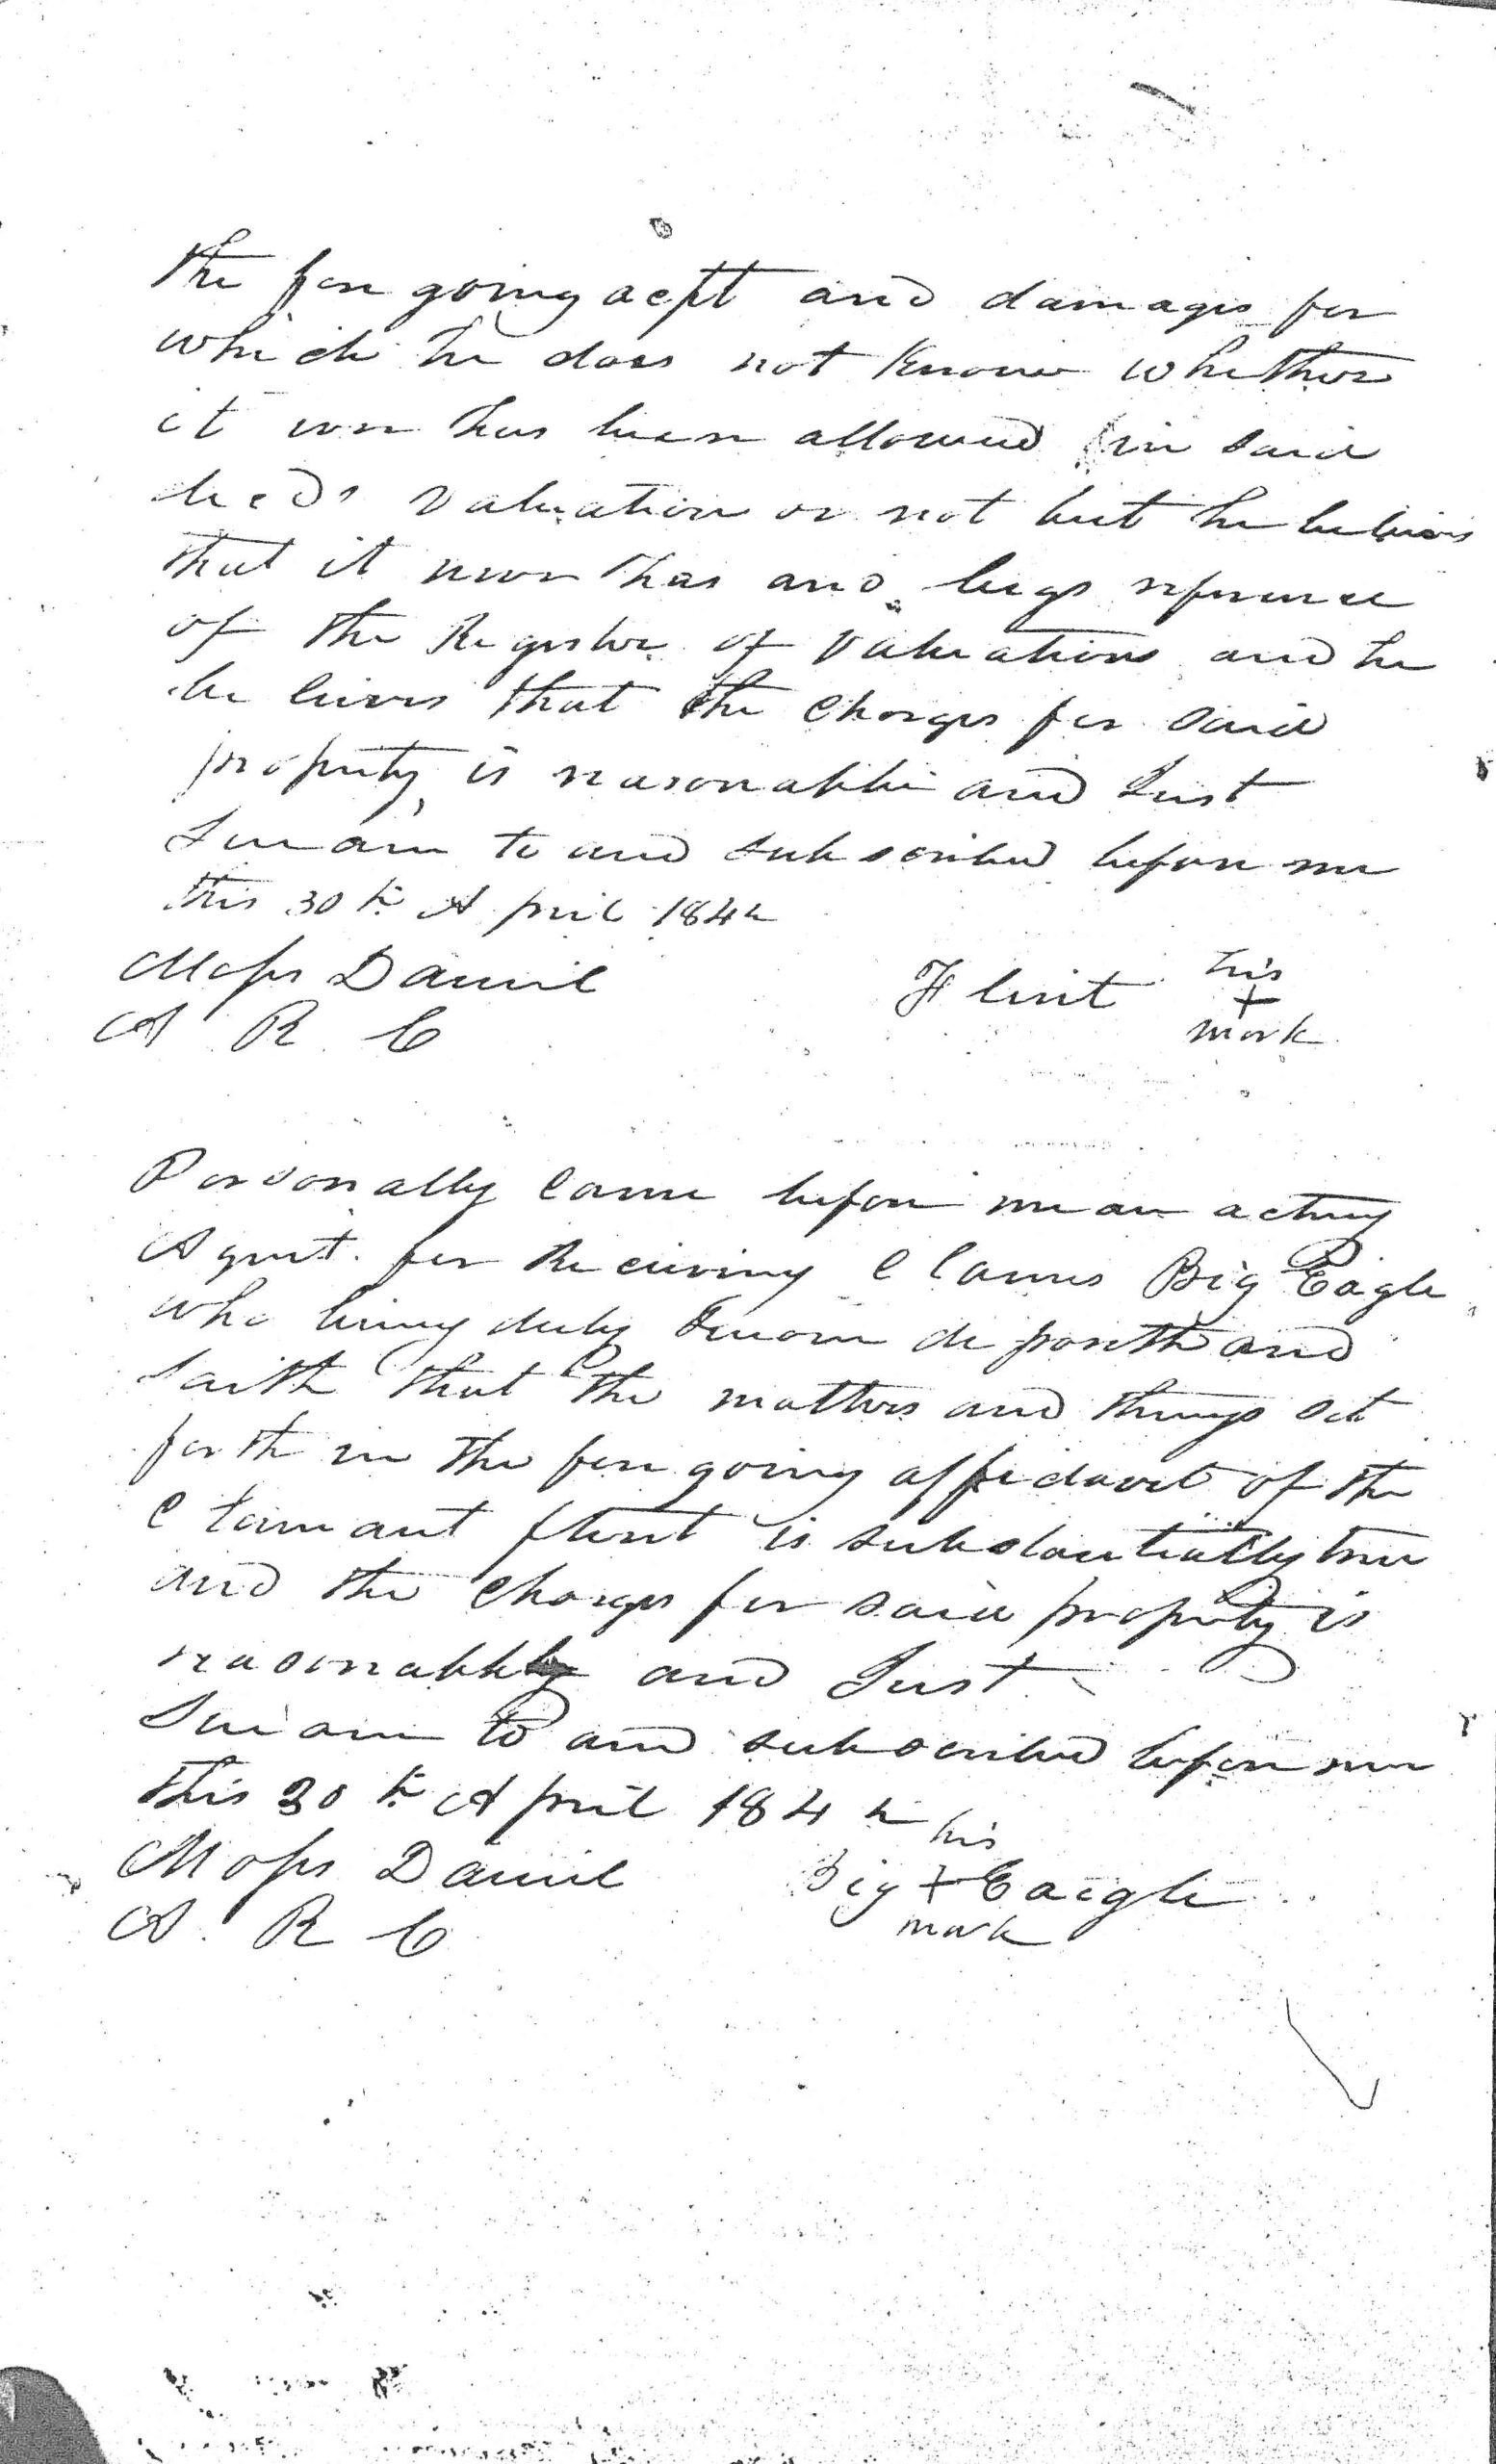 the fore going acpt and damages for
which he does not know whether
it ever has been allowed in said
decd's valuation or not but he believes
that it never has and begs reference
of the Register of valuations and he
believes that the charges for said
property is reasonable and Just
Swarn to and subscribed before me
this 30th April 1842
Moses Daniel
A R C
Flint his
+
mark
Personally came before me an acting
Agent for Receiving Claims Big Eagle
who being duly Sworn deposeth and
saith that the matters and things set
forth in the fore going affidavit of the
Claimant flint is substantially true
and the charges for said property is
reasonable and Just
Swarn to and subscribed before me
this 30th April 1842
Moses Daniel
A. R C
his
Big + Eaigle
mark